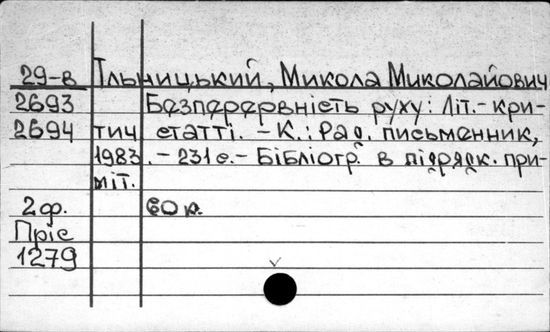 29-в Ільницький, Микола Миколайович
2693 Безперервність руху: Літ.-кри-
2694 тич статті. - К.: Рад. письменник,
1983. - 231 с. - Бібліогр. в підрядк. при-
міт.
2 ф. 60 к.
Пріс
1279